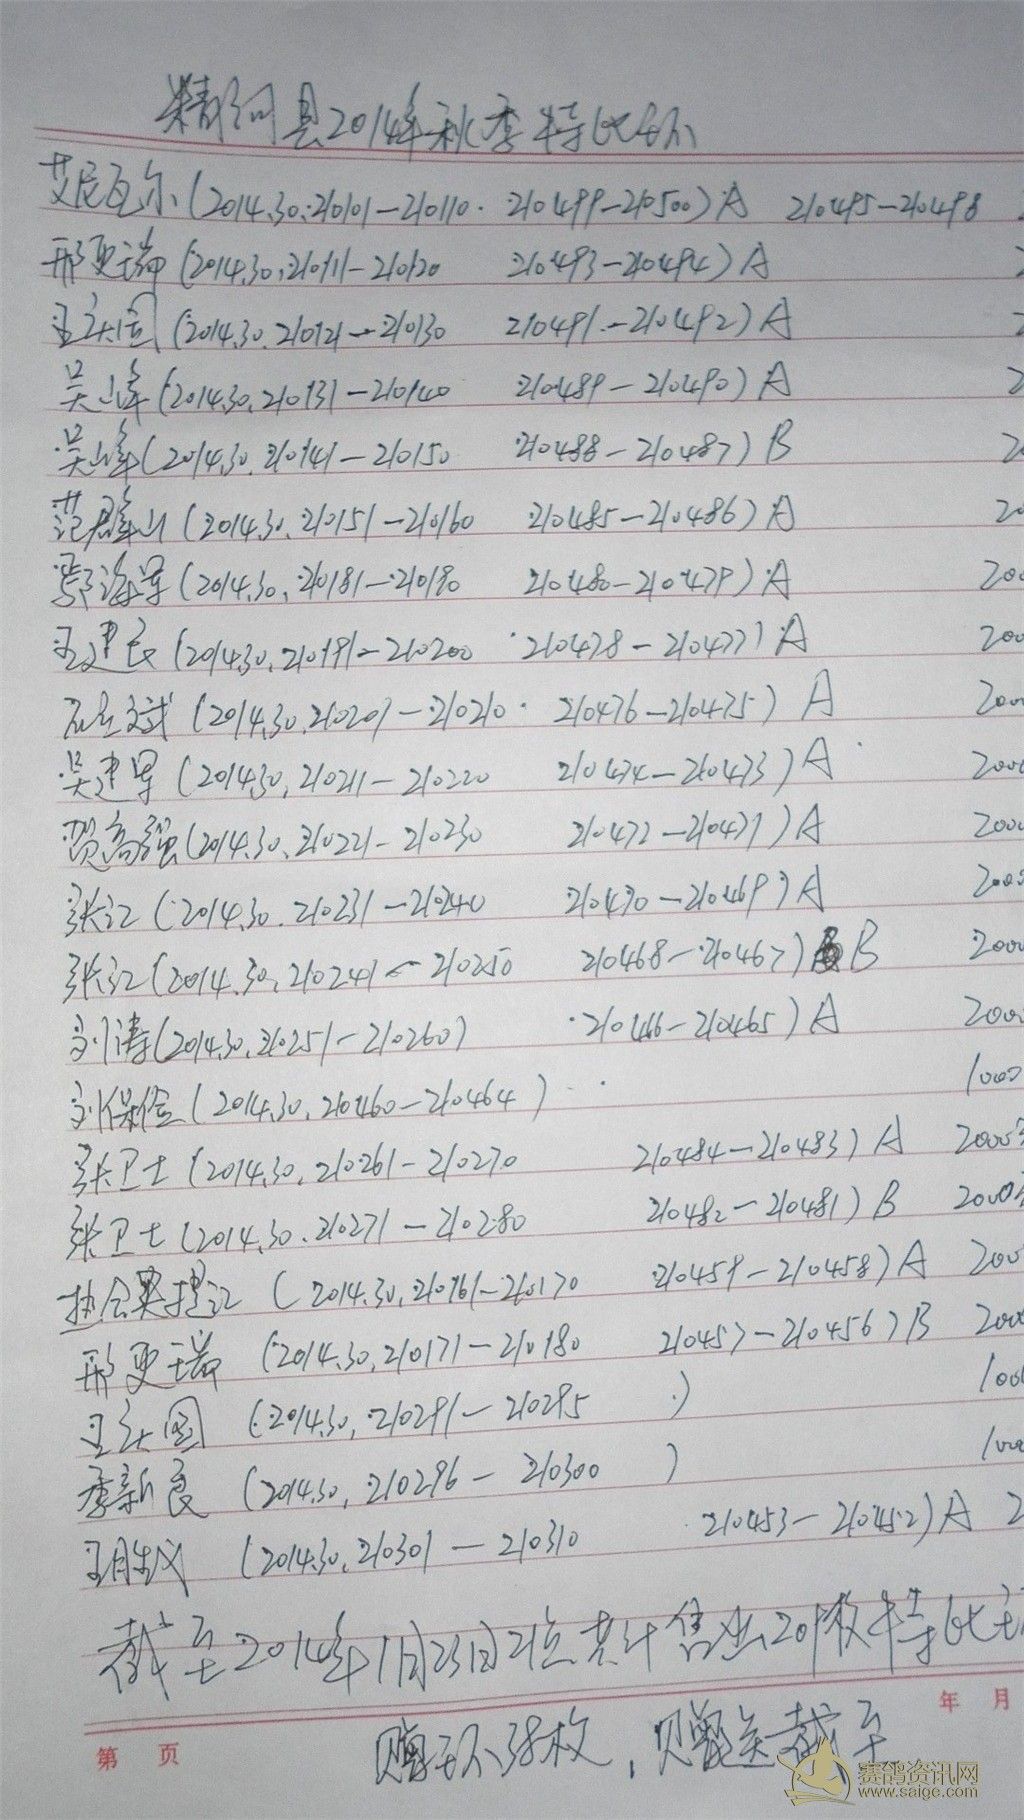 精河县2014年秋季特比环
艾尼瓦尔(2014.30.210101-210110. 210499-210500)A 210495-210498
邢更瑞(2014.30.210111-210120 210493-210494)A
王庆国(2014.30.210121-210130 210491-210492)A
吴峰(2014.30.210131-210140 210489-210490)A 2
吴峰(2014.30.210141-210150 210488-210487)B 20
范群山(2014.30.210151-210160 210485-210486)A 20
鄂海军(2014.30.210181-210190 210480-210479)A 200
王建民(2014.30.210191-210200 210478-210477)A 200
文斌(2014.30.210201-210210. 210476-210475)A 2000
吴建军(2014.30.210211-210220 210474-210473)A 2000
贾高强(2014.30.210221-210230 210472-210471)A 2000
张江(2014.30.210231-210240 210470-210469)A 2000
张江(2014.30.210241-210250 210468-210467)B 2000
刘涛(2014.30.210251-210260) 210466-210465)A 2000
刘保俭(2014.30.210460-210464) 1000
张卫士(2014.30.210261-210270 210484-210483)A 2000
张卫士(2014.30.210271-210280 210482-210481)B 2000
(2014.30.210161-210170 210459-210458)A 200
邢更瑞(2014.30.210171-210180 210457-210456)B 2000
王庆国(2014.30.210291-210295 ) 100
李新良(2014.30.210296-210300 ) 1000
王胜(2014.30.210301-210310 210453-210452)A 2
截至2014年1月23日 共计售出 枚特比环
年 月
第 页 赠环38枚,赠送截至
赛鸽资讯网
www.saige.com